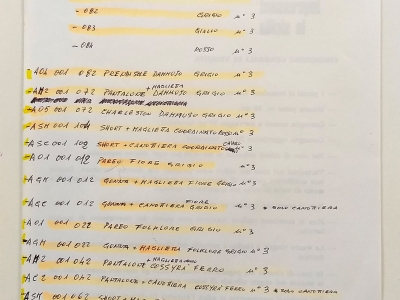 - 082 GRIGIO N° 3
- 083 GIALLO N° 3
- 084 ROSSO N° 3
- A04 001 082 PRENDISOLE DAMMUSO GRIGIO N° 3
+ MAGLIETTA
- AM2 001 072 PANTALONE DAMMUSO GRIGIO N° 3
- A05 001 072 CHARLESTON DAMMUSO GRIGIO N° 3
- ASM 001 104 SHORT + MAGLIETTA COORDINATO ROSSO N° 3
- ASC 001 109 SHORT + CANOTTIERA COORDINATO N° 3
- A01 001 012 PAREO FIORE GRIGIO N° 3
AGM 001 012 GONNA + MAGLIETTA FIORE GRIGIO N° 3
FIORE
AGC 001 012 GONNA + CANOTTIERA GRIGIO N° 3 * SOLO CANOTTIERA
- A01 001 022 PAREO FOLKLORE GRIGIO N° 3
AGM 001 022 GONNA + MAGLIETTA FOLKLORE GRIGIO N° 3
+ MAGLIETTA
- AM2 001 042 PANTALONE COSSYRA FERRO N° 3
AC2 001 042 PANTALONE + CANOTTIERA COSSYRA FERRO N° 3 * SOLO CANOTTIERA
ASM 001 062 SHORT +